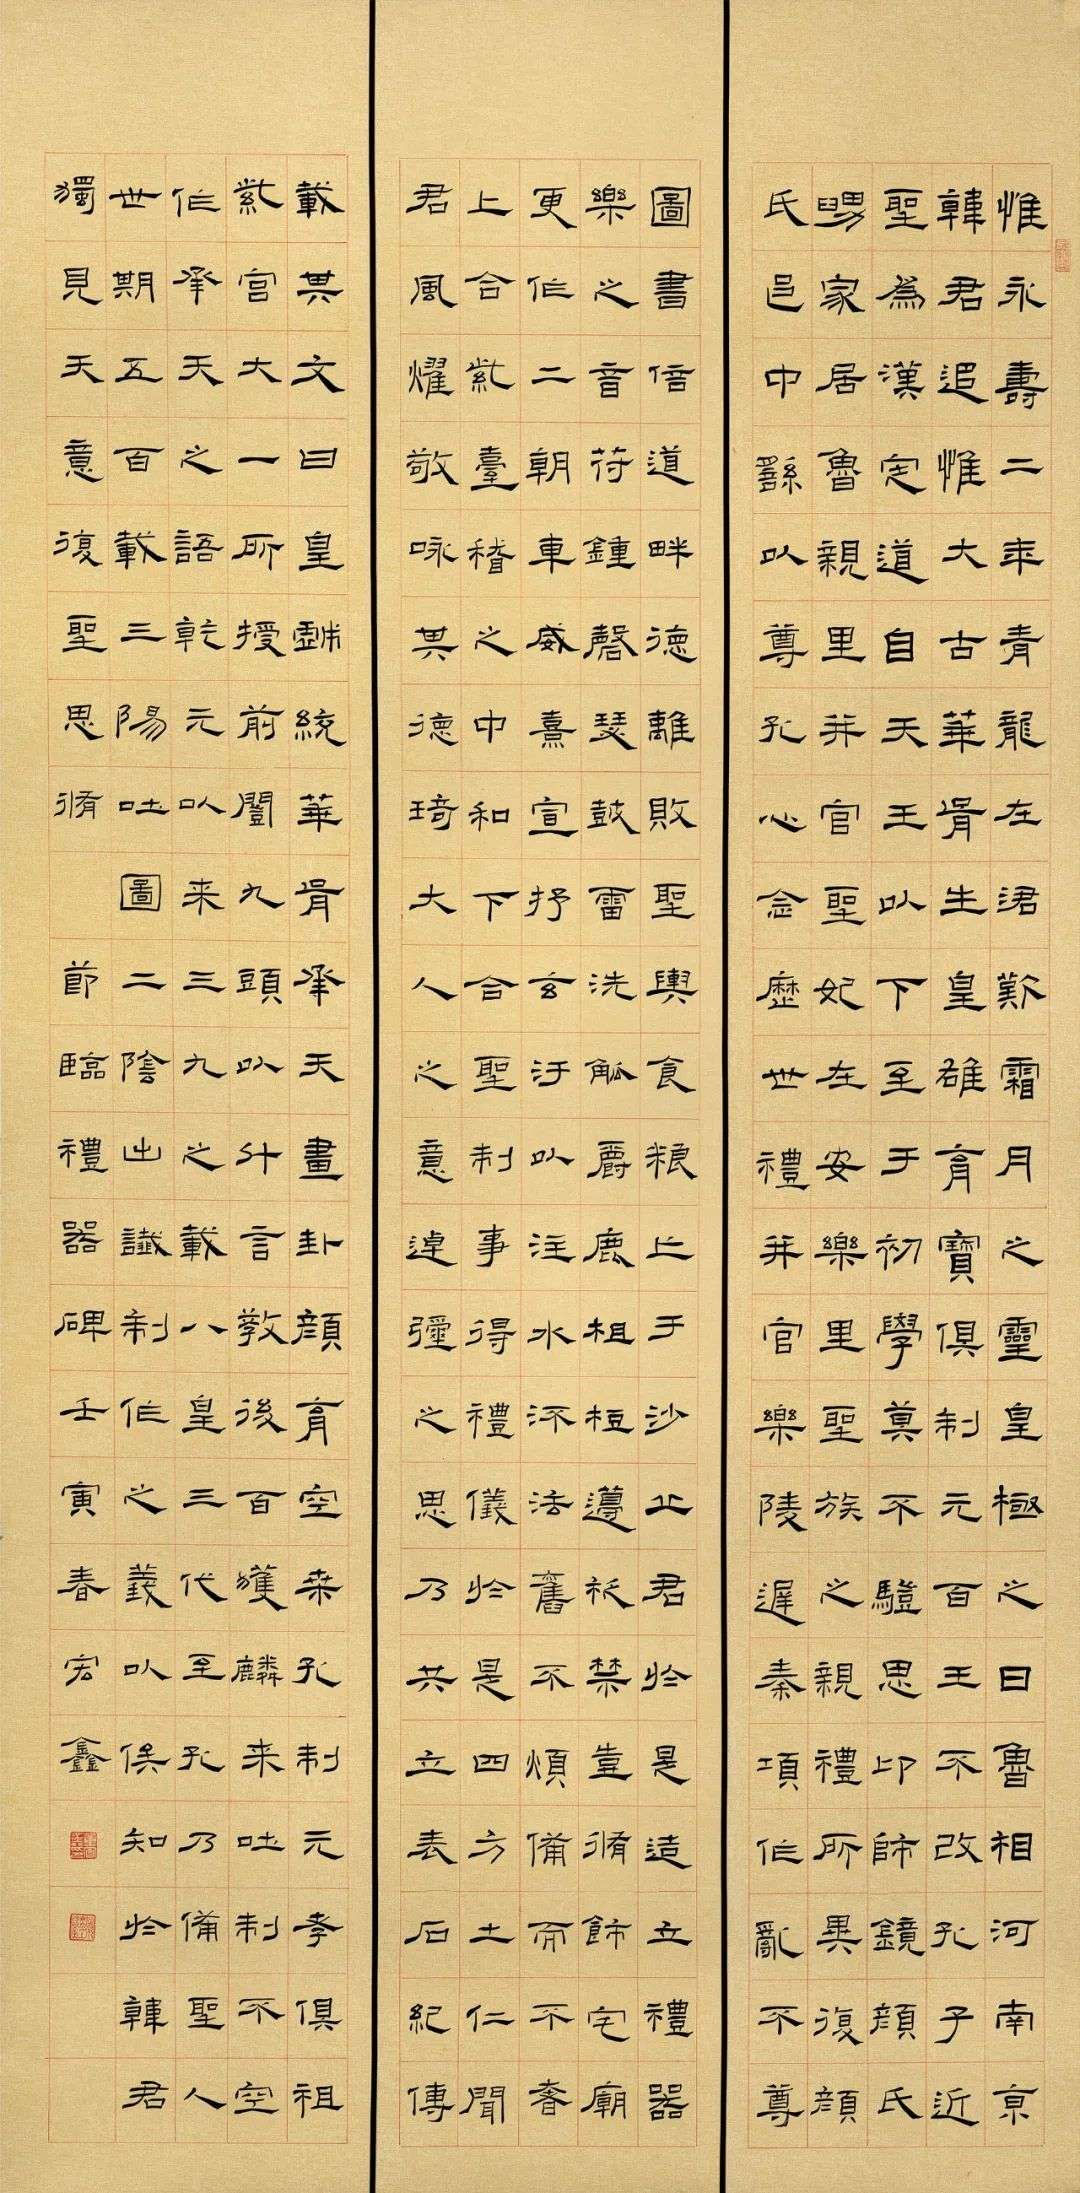 惟永壽二年青龍在涒歎霜月之靈皇極之日魯相河南京
韓君追惟大古華胥生皇雄育寶俱制元百王不改孔子近
聖為漢定道自天王以下至于初學莫不驥思卬師鏡顏氏
舅家居魯親里并官聖妃在安樂里聖族之親禮所異復顏
氏邑中繇以尊孔心念歷世禮并官樂陵遲秦項作亂不尊
圖書倍道畔德離敗聖輿食粮亡于沙丘君於是造立禮器
樂之音苻鍾磬瑟鼓雷洗觚爵鹿柤梪籩柉禁壺脩飾宅廟
更作二朝車威熹宣抒玄汙以注水流法舊不煩備而不奢
上合紫臺稽之中和下合聖制事得禮儀於是四方土仁聞
君風燿敬咏其德琦大人之意逴彌之思乃共立表石紀傳
載其文曰皇戲統華胥承天畫卦顏育空桑孔制元孝俱祖
紫宮大一所授前闓九頭以什言教後百獲麟來吐制不空
作承天之語乾元以來三九之載八皇三代至孔乃備聖人
世期五百載三陽吐圖二陰出讖制作之義以俟知於韓君
獨見天意復聖思脩 節臨禮器碑壬寅春宏鑫